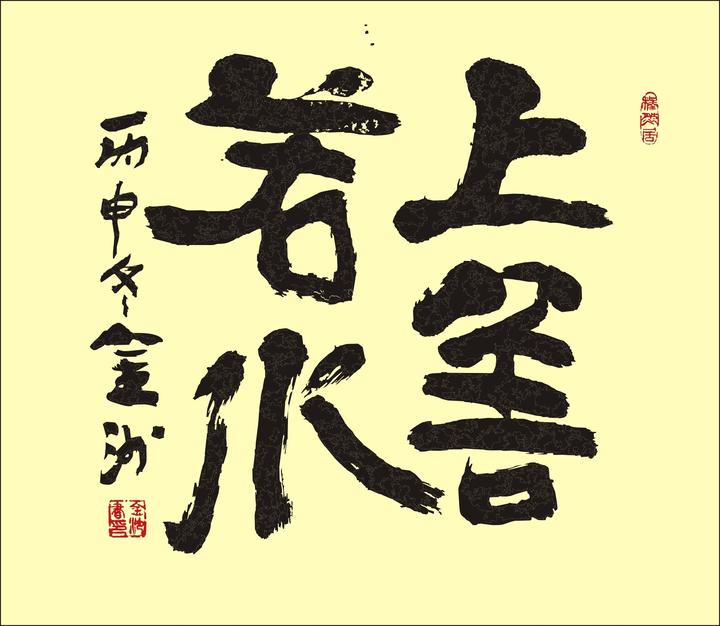 上善
若水
丙申冬金洲